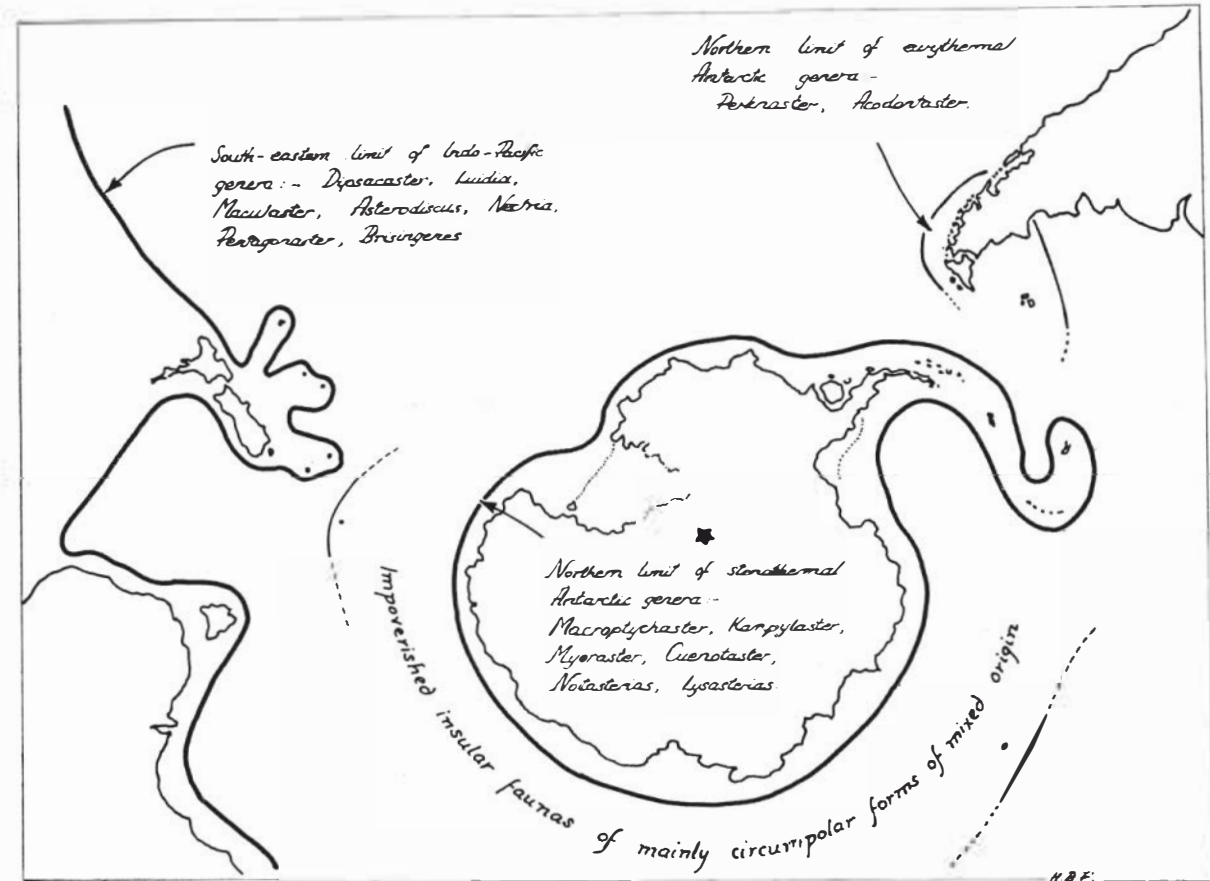 Northern limit of eurythermal
Antarctic genera -
Perknaster, Acodontaster.
South-eastern limit of Indo-Pacific
genera : - Dipsacaster, Luidia,
Maculaster, Asterodiscus, Nectria,
Pentagonaster, Brisingenes
Northern limit of stenothermal
Antarctic genera :-
Macroptychaster, Kampylaster,
Myoraster, Cuenotaster,
Notasterias, Lysasterias
Impoverished insular faunas of mainly circumpolar forms of mixed origin
H.B.F.